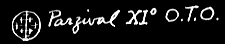 Parzival XI° O.T.O.